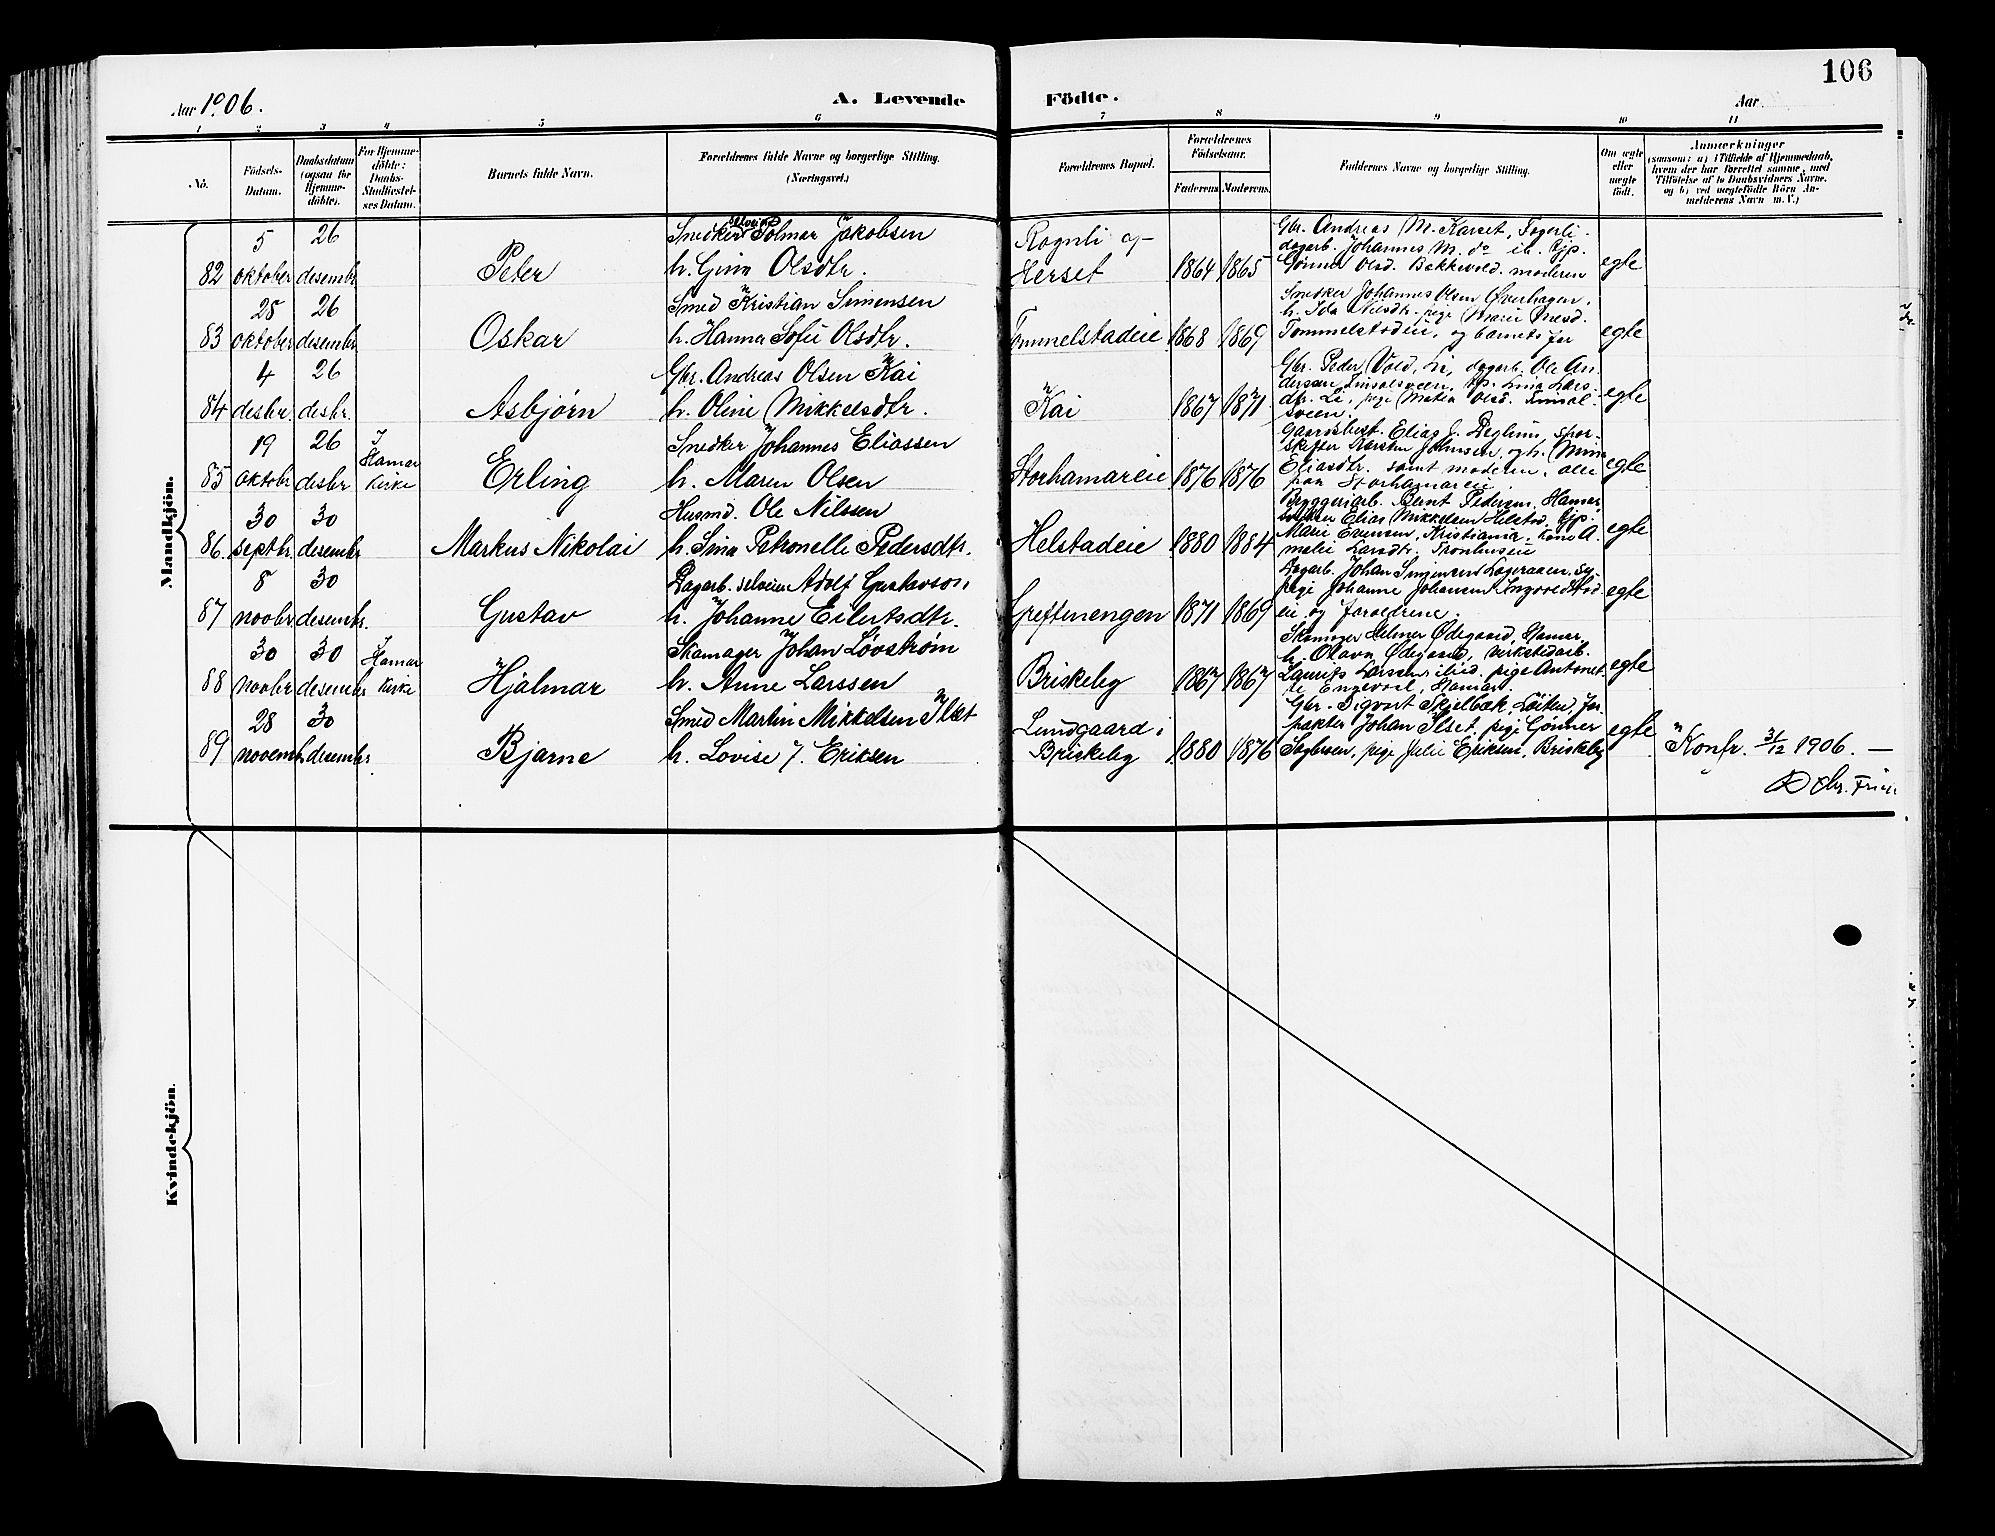 106
Aar 1906.
A. Levende Födte.
Aar
1 2 3 4 5 6 7 8 9 10 11
No.
Födsels-Datum.
Daabsdatum (ogsaa for Hjemme-döbte).
For Hjemme-döbte: Daabs-Stadfæstelses Datum.
Barnets fulde Navn.
Forældrenes fulde Navne og borgerlige Stilling. (Næringsvei.)
Forældrenes Bopæl.
Forældrenes Födselsaar.
Faderens. Moderens.
Faddernes Navne og borgerlige Stilling.
Om ægte eller uægte födt.
Anmærkninger
(saasom: a) i Tilfælde af Hjemmedaab, hvem der har forrettet samme, med Tilföielse af to Daabsvidners Navne. og b) ved uægtefödte Börn Anmelderens Navn m. V.)
Mandkjön.
82 5 oktober 26 desembr
Peter
Snedker selveier Solmar Jakobsen
h. Gina Olsdtr.
Rognli og Herset
1864 1865
Gbr. Andreas M. Karset, Fagerli.
dagarb. Johannes M. do ib. Gjp.
Gønner Olsd. Bakkevold. moderen
egte
83 28 oktober 26 desembr
Oskar
Smed Kristian Simensen
h. Hanna Sofie Olsdtr.
Tommelstadeie
1868 1869
Snedker Johannes Olsen Øverhagen.
h. Ida Nilsdtr. pige Marie
Tommelstadeie, og barnets far
egte
84 4 desbr. 26 desbr.
Asbjørn
Gbr. Andreas Olsen Kai
h. Oline Mikkelsdtr.
Kai
1867 1871
Gbr. Peder Vold, Li, dagarb. Ole An-
dersen Linsolsveen, Gjp. Lina Lars-
dtr. Li, pige Matea Olsd. Linsol-
sveen.
egte
85 19 oktobr 26 desbr
I Hamar Kirke
Erling
Snedker Johannes Eliassen
h. Maren Olsen
Storhamareie
1876 1876
Gaardsbest. Elias J. Deglum, spor-
skifter Karsten Johnsen, og h. Mina
Eliasdtr. samt moderen, alle
paa Storhamareie
egte
86. 30 septbr. 30 desembr
Markus Nikolai
Husmd. Ole Nilssen
h. Sina Petronelle Pedersdtr.
Helstadeie
1880 1884
Bryggeriarb. Bernt Pedersen, Hamar,
Elias Mikkelsen Helstad, Gjp.
Marie Evensen, Kristiania, kone A-
malie Larsdtr. Tronhuseie
egte
87 8 novbr 30 desembr.
Gustav
Dagarb. selveier Adolf Gustavson
h. Johanne Eilertsdtr.
Greftenengen
1871 1869
Dagarb. Johan Lageraaen, sy-
pige Johanne Johansen Ingvoldstad-
eie og forældrene.
egte
88 30 novbr 30 desembr
I Hamar Kirke
Hjalmar
Skomager Johan Løvstrøm
h. Anne Larssen
Briskeby
1867 1867
Skomager Helmer Ødegaard, Hamar,
h. Olava Ødegaard, virkesarb.
Laurits Larsen ibid. pige Antonet-
te Engevold, Hamar.
egte
89 28 novemb. 30 desembr
Bjarne
Smed Martin Mikkelsen Ilset
h. Lovise J. Eriksen
Lundgaard i Briskeby
1880 1876
Gbr. Sigvart Skjelbæk, Löiten, for-
pakter Johan Ilset, pige Gønner
Seglesen, pige Julie Eriksen, Briskeby
egte
Konfr. 31/12 1906. —
Chr. Friis
Kvindekjön.